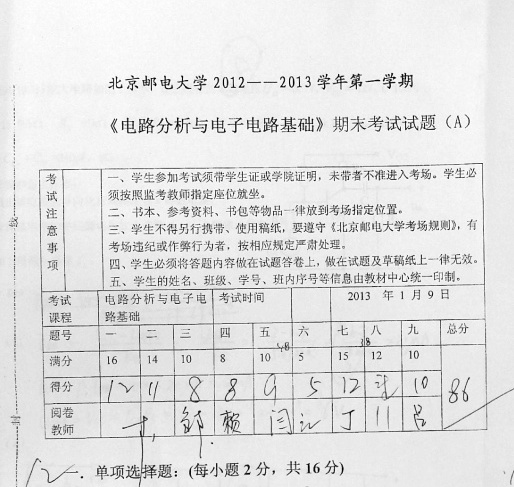 北京邮电大学 2012——2013 学年第一学期
《电路分析与电子电路基础》期末考试试题（A）
考试注意事项
一、学生参加考试须带学生证或学院证明，未带者不准进入考场。学生必
须按照监考教师指定座位就坐。
二、书本、参考资料、书包等物品一律放到考场指定位置。
三、学生不得另行携带、使用稿纸，要遵守《北京邮电大学考场规则》，有
考场违纪或作弊行为者，按相应规定严肃处理。
四、学生必须将答题内容做在试题答卷上，做在试题及草稿纸上一律无效。
五、学生的姓名、班级、学号、班内序号等信息由教材中心统一印制。
考试课程 电路分析与电子电路基础 考试时间 2013 年 1 月 9 日
题号 一 二 三 四 五 六 七 八 九 总分
满分 16 14 10 8 10 5 15 12 10
48 38
得分 12 11 8 8 9 5 12 10 86
阅卷教师 邹 赖 闫 江 丁 吕
12
一. 单项选择题：(每小题 2 分，共 16 分)